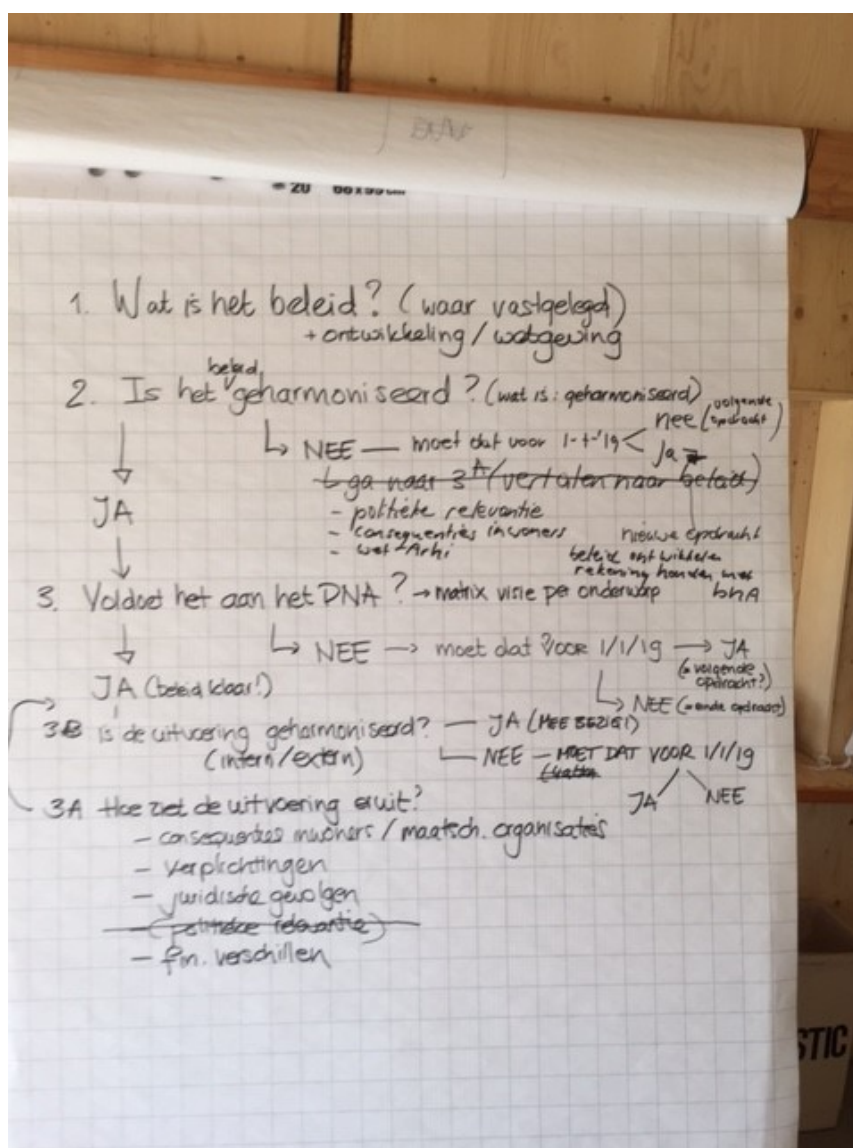 1. Wat is het beleid? (waar vastgelegd)
+ ontwikkeling / wetgeving
beleid
2. Is het geharmoniseerd? (wat is: geharmoniseerd)
nee (volgende opdracht)
NEE — moet dat voor 1-1-'19
Ja
ga naar 3A (vertalen naar beleid)
JA
- politieke relevantie
- consequenties inwoners
- wet-Arhi
nieuwe opdracht
beleid ontwikkelen
rekening houden met
DNA
3. Voldoet het aan het DNA? → matrix visie per onderwerp
NEE → moet dat voor 1/1/19 → JA
(= volgende opdracht?)
NEE (= einde opdracht)
JA (beleid klaar!)
3B is de uitvoering geharmoniseerd? — JA (MEE BEZIG!)
(intern/extern)
NEE — MOET DAT VOOR 1/1/19
JA NEE
3A Hoe ziet de uitvoering eruit?
- consequenties inwoners / maatsch. organisaties
- verplichtingen
- juridische gevolgen
- (politieke relevantie)
- fin. verschillen
STIC